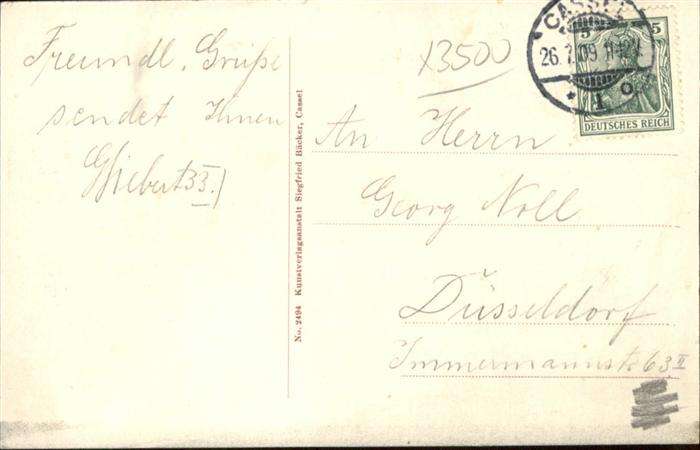 Freundl. Grüße
sendet Ihnen
No. 2494 Kunstverlagsanstalt Siegfried Bäcker, Cassel
x3500
CASSEL
26. 09 11-12V.
1
5 5
DEUTSCHES REICH
An Herrn
Georg Noll
Düsseldorf
Immermannstr. 63 II